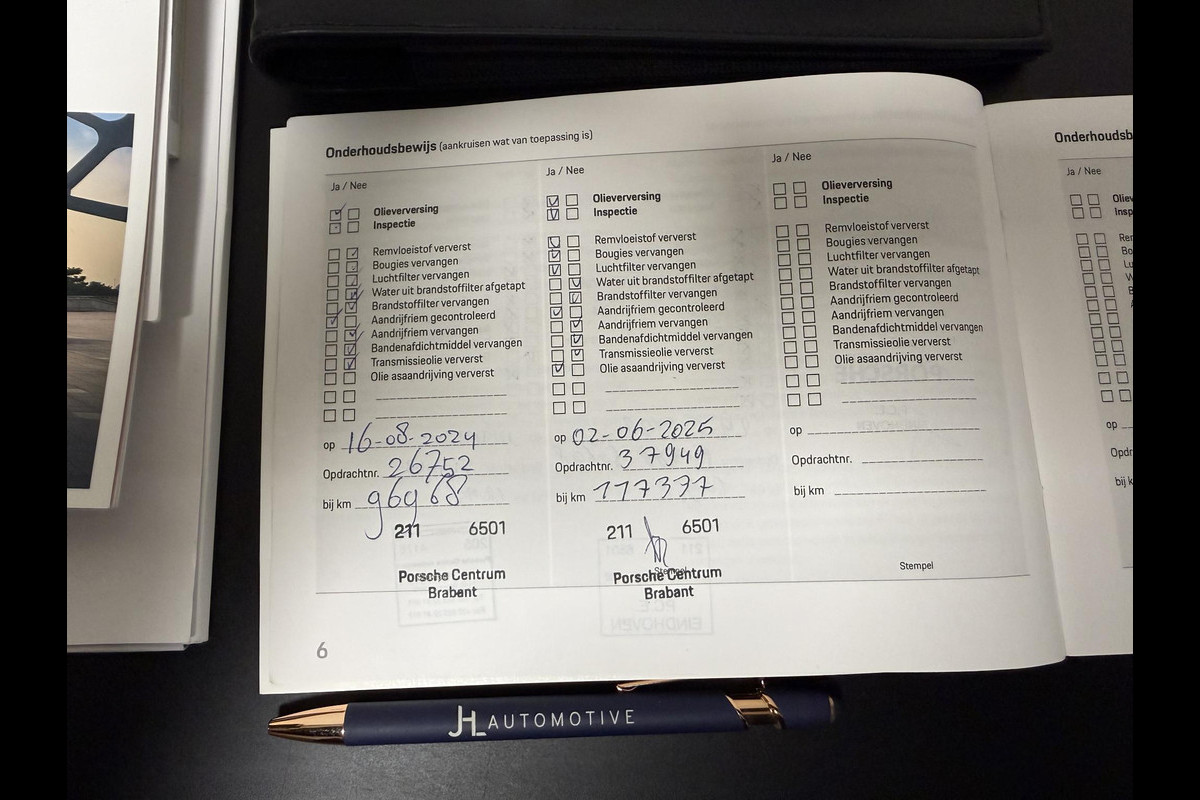 Onderhoudsbewijs (aankruisen wat van toepassing is)
Ja / Nee
Olieverversing
Inspectie
Remvloeistof ververst
Bougies vervangen
Luchtfilter vervangen
Water uit brandstoffilter afgetapt
Brandstoffilter vervangen
Aandrijfriem gecontroleerd
Aandrijfriem vervangen
Bandenafdichtmiddel vervangen
Transmissieolie ververst
Olie asaandrijving ververst
op 16-08-2024
Opdrachtnr. 26752
bij km 96968
211 6501
Porsche Centrum
Brabant
Ja / Nee
Olieverversing
Inspectie
Remvloeistof ververst
Bougies vervangen
Luchtfilter vervangen
Water uit brandstoffilter afgetapt
Brandstoffilter vervangen
Aandrijfriem gecontroleerd
Aandrijfriem vervangen
Bandenafdichtmiddel vervangen
Transmissieolie ververst
Olie asaandrijving ververst
op 02-06-2025
Opdrachtnr. 37949
bij km 117337
211 6501
Stempel
Porsche Centrum
Brabant
Ja / Nee
Olieverversing
Inspectie
Remvloeistof ververst
Bougies vervangen
Luchtfilter vervangen
Water uit brandstoffilter afgetapt
Brandstoffilter vervangen
Aandrijfriem gecontroleerd
Aandrijfriem vervangen
Bandenafdichtmiddel vervangen
Transmissieolie ververst
Olie asaandrijving ververst
op
Opdrachtnr.
bij km
Stempel
6
Onderhoudsb
Ja / Nee
Oliev
Insp
Rem
Bo
Lu
op
Opdr
bij k
JHL AUTOMOTIVE